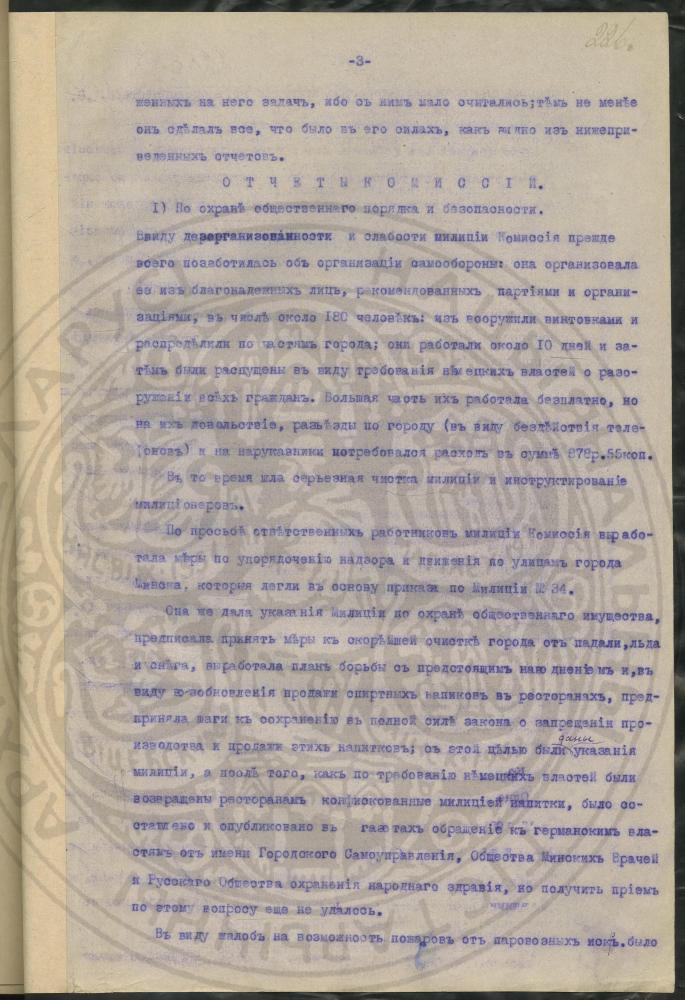 226.
-3-
женныхъ на него задачъ, ибо съ нимъ мало считались;тѣмъ не менѣе
онъ сдѣлалъ все, что было въ его силахъ, какъ видно изъ нижепри-
веденныхъ отчетовъ.
О Т Ч Е Т Ы К О М И С С І Й.
I) По охранѣ общественнаго порядка и безопасности.
Ввиду дезорганизованности и слабости милиціи Комиссія прежде
всего позаботилась объ организаціи самообороны: она организовала
ее изъ благонадежныхъ лицъ, рекомендованныхъ партіями и органи-
заціями, въ числѣ около I80 человѣкъ: ихъ вооружили винтовками и
распредѣлили по частямъ города; они работали около I0 дней и за-
тѣмъ были распущены въ виду требованія нѣмецкихъ властей о разо-
руженіи всѣхъ гражданъ. Большая часть ихъ работала безплатно, но
на ихъ довольствіе, разъѣзды по городу (въ виду бездѣйствія теле-
фоновъ) и на нарукавники потребовался расходъ въ суммѣ 878р.55коп.
Въ то время шла серьезная чистка милиціи и инструктированіе
милиціонеровъ.
По просьбѣ отвѣтственныхъ работниковъ милиціи Комиссія вырабо-
тала мѣры по упорядоченію надзора и движенія по улицамъ города
Минска, которыя легли въ основу приказа по Милиціи № 34.
Она же дала указанія Милиціи по охранѣ общественнаго имущества,
предписала принять мѣры къ скорѣйшей очисткѣ города отъ падали,льда
и снѣга, выработала планъ борьбы съ предстоящимъ наводненіемъ и,въ
виду возобновленія продажи спиртныхъ напиковъ въ ресторанахъ, пред-
приняла шаги къ сохраненію въ полной силѣ закона о запрещеніи про-
изводства и продажи этихъ напитковъ; съ этой цѣлью были даны указанія
милиціи, а послѣ того, какъ по требованію нѣмецкихъ властей были
возвращены ресторанамъ конфискованные милиціей напитки, было со-
ставлено и опубликовано въ газетахъ обращеніе къ германскимъ вла-
стямъ отъ имени Городского Самоуправленія, Общества Минскихъ Врачей
и Русскаго Общества охраненія народнаго здравія, но получить пріемъ
по этому вопросу еще не удалось.
Въ виду жалобъ на возможность пожаровъ отъ паровозныхъ искъ.было